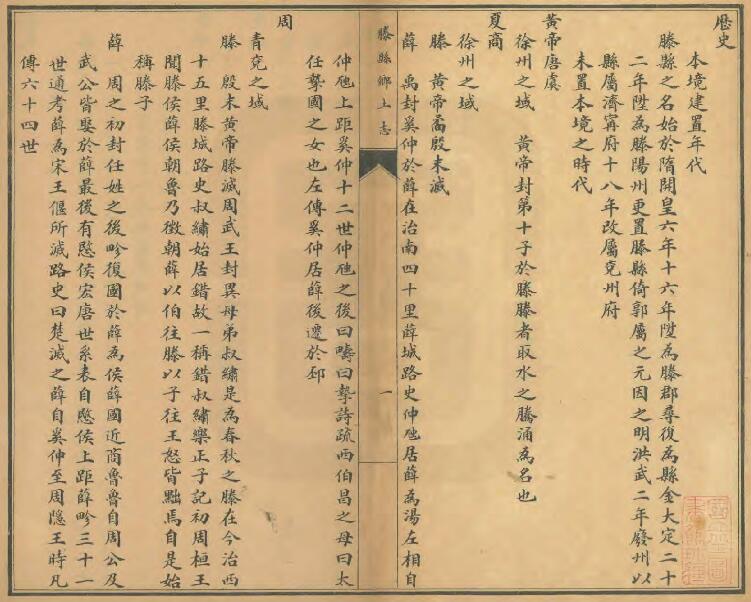 歷史
本境建置年代
滕縣之名始於隋開皇六年十六年陞為滕郡尋復為縣金大定二十
二年陞為滕陽州更置滕縣倚郭屬之元因之明洪武二年廢州以
縣屬濟甯府十八年改屬兗州府
未置本境之時代
黃帝唐虞
徐州之域　黃帝封第十子於滕滕者取水之騰涌為名也
夏商
徐州之域
滕　黃帝裔殷末滅
薛　禹封奚仲於薛在治南四十里薛城路史仲虺居薛為湯左相自
滕縣鄉土志
一
仲虺上距奚仲十二世仲虺之後曰疇曰摯詩疏西伯昌之母曰太
任摯國之女也左傳奚仲居薛後遷於邳
周
青兗之域
滕　殷末黃帝滕滅周武王封異母弟叔繡是為春秋之滕在今治西
十五里滕城路史叔繡始居錯故一稱錯叔繡樂正子記初周桓王
聞滕侯薛侯朝魯乃徵朝薛以伯往滕以子往王怒皆黜焉自是始
稱滕子
薛　周之初封任姓之後畛復國於薛為侯薛國近商魯魯自周公及
武公皆娶於薛最後有愍侯宏唐世系表自愍侯上距薛畛三十一
世通考薛為宋王偃所滅路史曰楚滅之薛自奚仲至周隱王時凡
傳六十四世